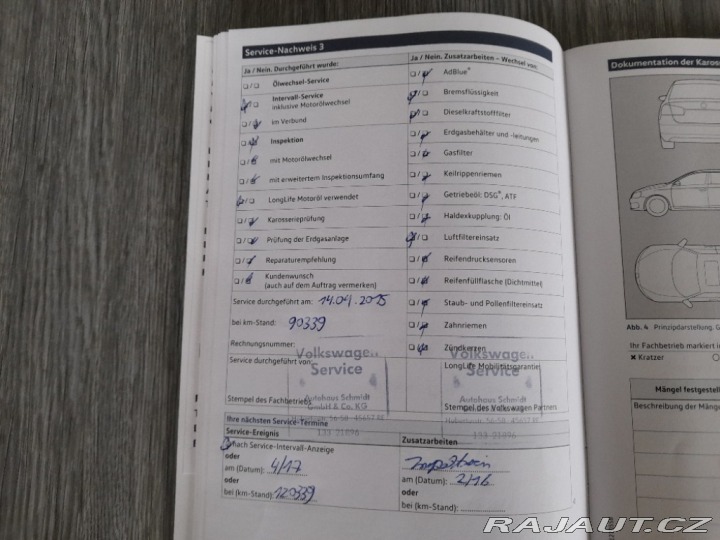 Service-Nachweis 3
Ja / Nein. Durchgeführt wurde:
Ölwechsel-Service
Intervall-Service
inklusive Motorölwechsel
im Verbund
Inspektion
mit Motorölwechsel
mit erweitertem Inspektionsumfang
LongLife Motoröl verwendet
Karosserieprüfung
Prüfung der Erdgasanlage
Reparaturempfehlung
Kundenwunsch
(auch auf dem Auftrag vermerken)
Service durchgeführt am: 14.04.2015
bei km-Stand: 90339
Rechnungsnummer:
Service durchgeführt von:
Volkswagen
Service
Autohaus Schmidt
GmbH & Co. KG
Stempel des Fachbetriebs
133 21896
Ja / Nein. Zusatzarbeiten – Wechsel von:
AdBlue®
Bremsflüssigkeit
Dieselkraftstofffilter
Erdgasbehälter und -leitungen
Gasfilter
Keilrippenriemen
Getriebeöl: DSG®, ATF
Haldexkupplung: Öl
Luftfiltereinsatz
Reifendrucksensoren
Reifenfüllflasche (Dichtmittel)
Staub- und Pollenfiltereinsatz
Zahnriemen
Zündkerzen
LongLife Mobilitätsgarantie
Volkswagen
Service
Autohaus Schmidt
Stempel des Volkswagen Partners
133 21896
Ihre nächsten Service-Termine
Service-Ereignis
nach Service-Intervall-Anzeige
oder
am (Datum): 4/17
oder
bei (km-Stand): 120339
Zusatzarbeiten
Inspektion
am (Datum): 2/16
oder
bei (km-Stand):
Dokumentation der Karos
Abb. 4 Prinzipdarstellung. G
Ihr Fachbetrieb markiert in
Kratzer
Mängel festgestell
Beschreibung der Mänge
RAJAUT.CZ